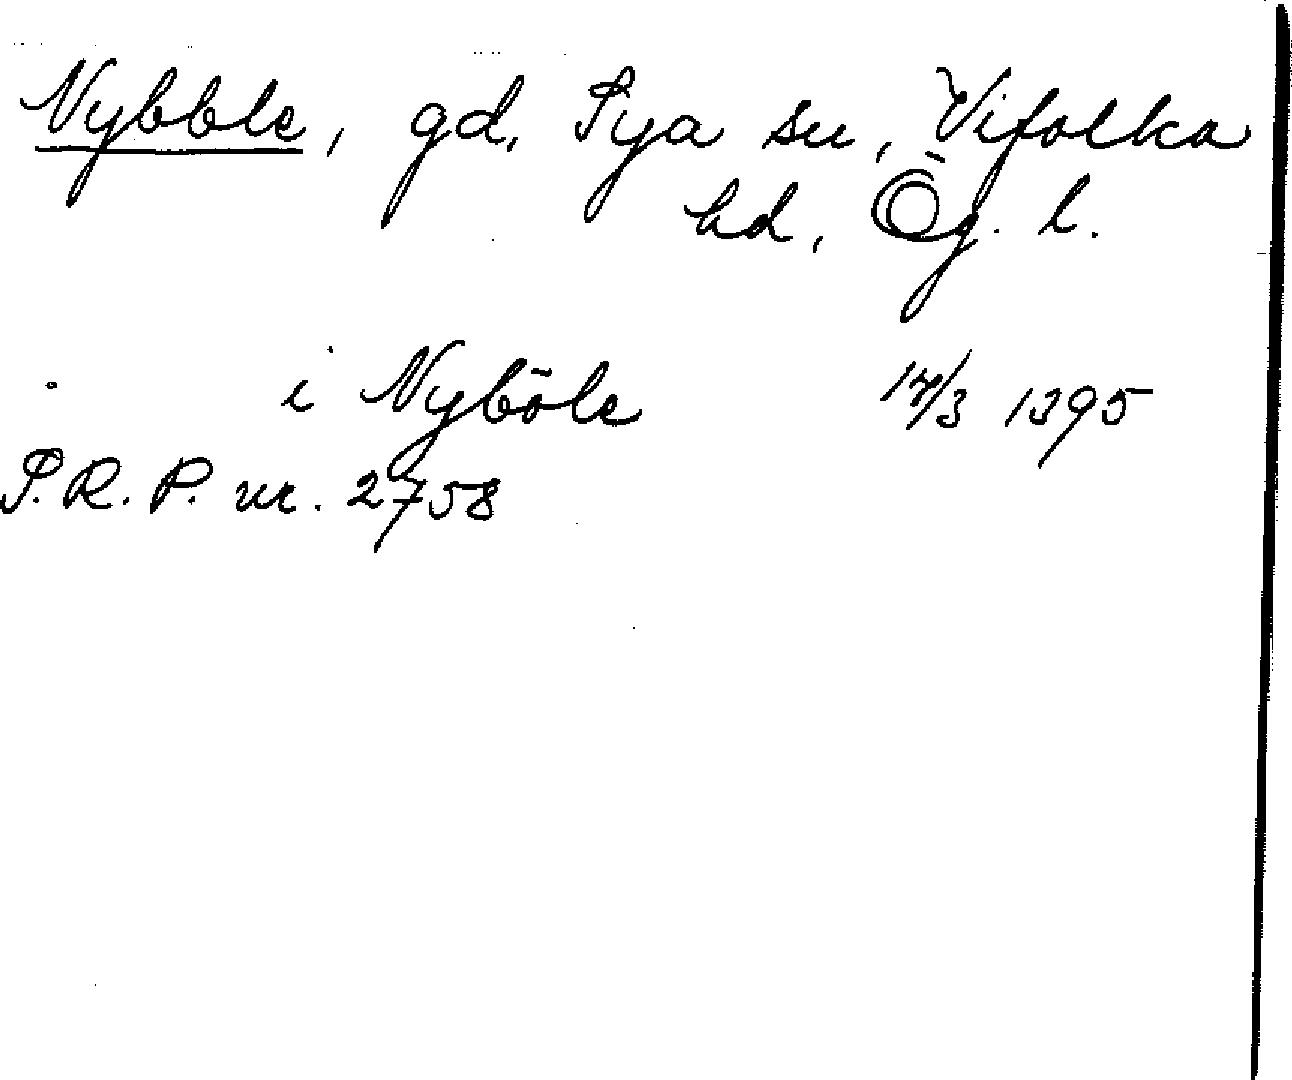 Nybble, gd, Sya sn, Vifolka
hd, Ög. l.
i Nyböle 17/3 1395
S.R.P. nr. 2758